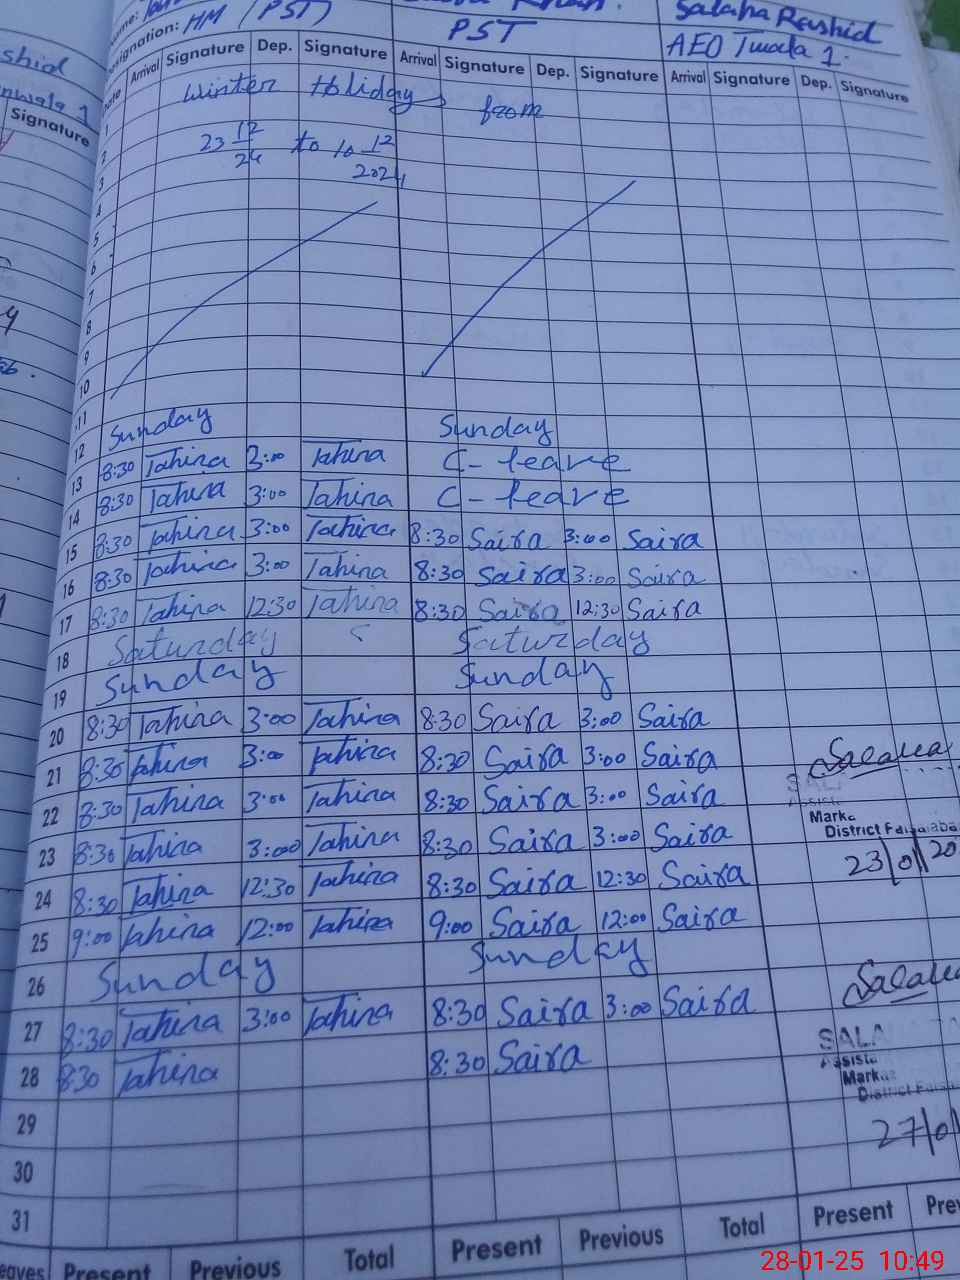 Designation: HM (PST)
PST
Salaha Rashid
AEO Twala 1.
shid
nwala 1
Signature
Arrival Signature Dep. Signature Arrival Signature Dep. Signature Arrival Signature Dep. Signature
1 Winter Holidays from
2 23 12/24 to 10 12/2024
3
4
5
6
7
8
9
10
11
12 Sunday Sunday
13 8:30 Tahira 3:00 Tahira C-leave
14 8:30 Tahira 3:00 Tahira C-leave
15 8:30 Tahira 3:00 Tahira 8:30 Saira 3:00 Saira
16 8:30 Tahira 3:00 Tahira 8:30 Saira 3:00 Saira
17 8:30 Tahira 12:30 Tahira 8:30 Saira 12:30 Saira
18 Saturday Saturday
19 Sunday Sunday
20 8:30 Tahira 3:00 Tahira 8:30 Saira 3:00 Saira
21 8:30 Tahira 3:00 Tahira 8:30 Saira 3:00 Saira
22 8:30 Tahira 3:00 Tahira 8:30 Saira 3:00 Saira
23 8:30 Tahira 3:00 Tahira 8:30 Saira 3:00 Saira
24 8:30 Tahira 12:30 Tahira 8:30 Saira 12:30 Saira
25 9:00 Tahira 12:00 Tahira 9:00 Saira 12:00 Saira
26 Sunday Sunday
27 8:30 Tahira 3:00 Tahira 8:30 Saira 3:00 Saira
28 8:30 Tahira 8:30 Saira
29
30
31
SAL
Assist
Mark
District Faisalabad
23/01/20
SALA
Assista
Marka
District Faisa
27/01
eaves Present Previous Total Present Previous Total Present Prev
28-01-25 10:49